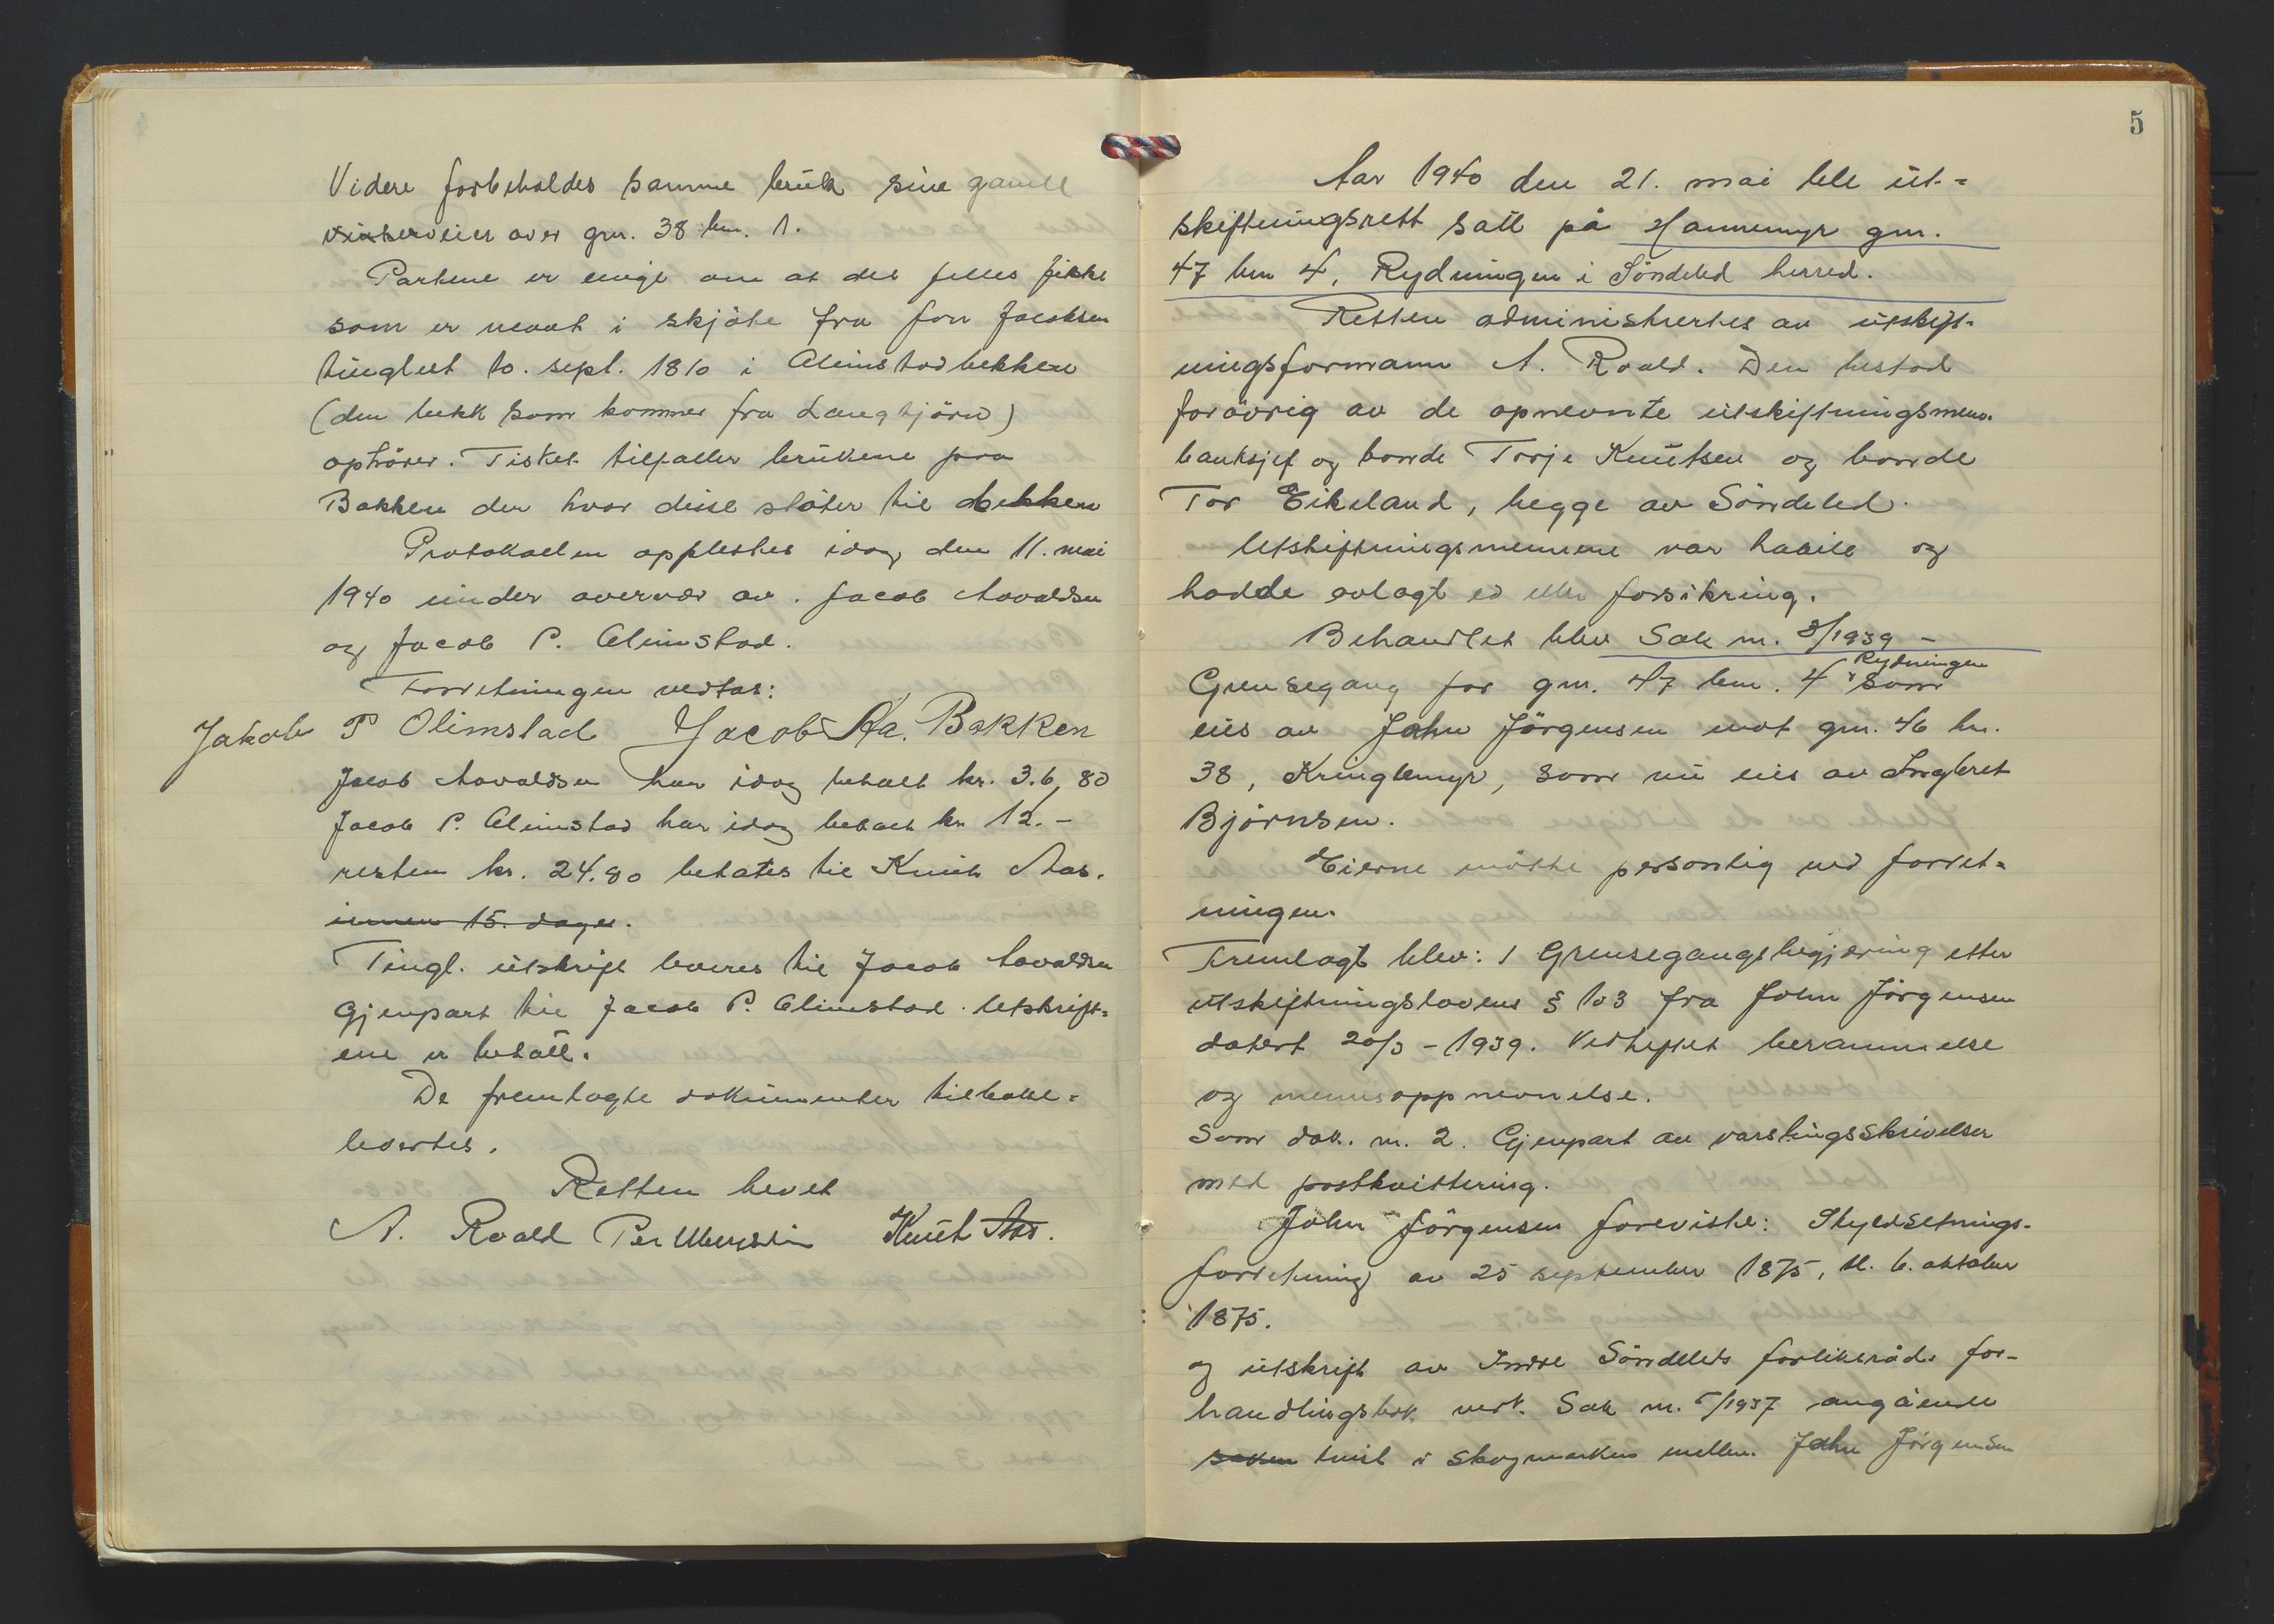 Videre forbeholdes samme bruk sine gamle
vinterveier over gnr. 38 bnr. 1.
Partene er enige om at det felles fiske
som er nevnt i skjöte fra Jon Jacobsen
tinglest 10. sept. 1810 i Olimstadbekken
(den bekk som kommer fra Langtjörn)
ophörer. Fisket tilfaller brukene paa
Bakken der hvor disse stöter til bekken
Protokollen opplestes idag den 11. mai
1940 under overvær av Jacob Aavaldsen
og Jacob P. Olimstad.
Forretningen vedtas:
Jakob P Olimstad Jacob Aa. Bakken
Jacob Aavaldsen har idag betalt kr. 36,80
Jacob P. Olimstad har idag betalt kr 12.-
resten kr. 24.80 betales til Knut Aas.
innen 15. dager.
Tingl. utskrift leveres til Jacob Aavaldsen
Gjenpart til Jacob P. Olimstad. Utskrift-
ene er betalt.
De fremlagte dokumenter tilbake-
levertes.
Retten hevet
A. Roald Per Knut Aas.
5
Aar 1940 den 21. mai ble ut-
skiftningsrett satt på Hannemyr gnr.
47 bnr 4, Rydningen i Söndeled herred.
Retten administrertes av utskift-
ningsformann A. Roald. Den bestod
forövrig av de opnevnte utskiftningsmenn.
banksjef og bonde Torje Knutsen og bonde
Tor Eikeland, begge av Söndeled.
Utskiftningsmennene var habile og
hadde avlagt ed eller forsikring.
Behandlet blev Sak nr. 8/1939 -
Grensegang for gnr. 47 bnr. 4 Rydningen som
eies av John Jörgensen mot gnr. 46 bnr.
38, Kringlemyr, som nu eies av Ingbret
Björnsen.
Eierne mötte personlig ved forret-
ningen.
Fremlagt blev: 1 Grensegangsbegjæring etter
utskiftningslovens § 103 fra John Jörgensen
datert 20/3 - 1939. Vedheftet berammelse
og mennsoppnevnelse.
Som dok. nr. 2. Gjenpart av varslingsskrivelser
med postkvittering.
John Jörgensen foreviste: Skyldsetnings-
forretning av 25 september 1875, tl. 6. oktober
1875.
og utskrift av Indre Söndeleds forliksråds for-
handlingsbok vedr. Sak nr. 5/1937 angående
saken tvist i skogmarken mellem John Jörgensen